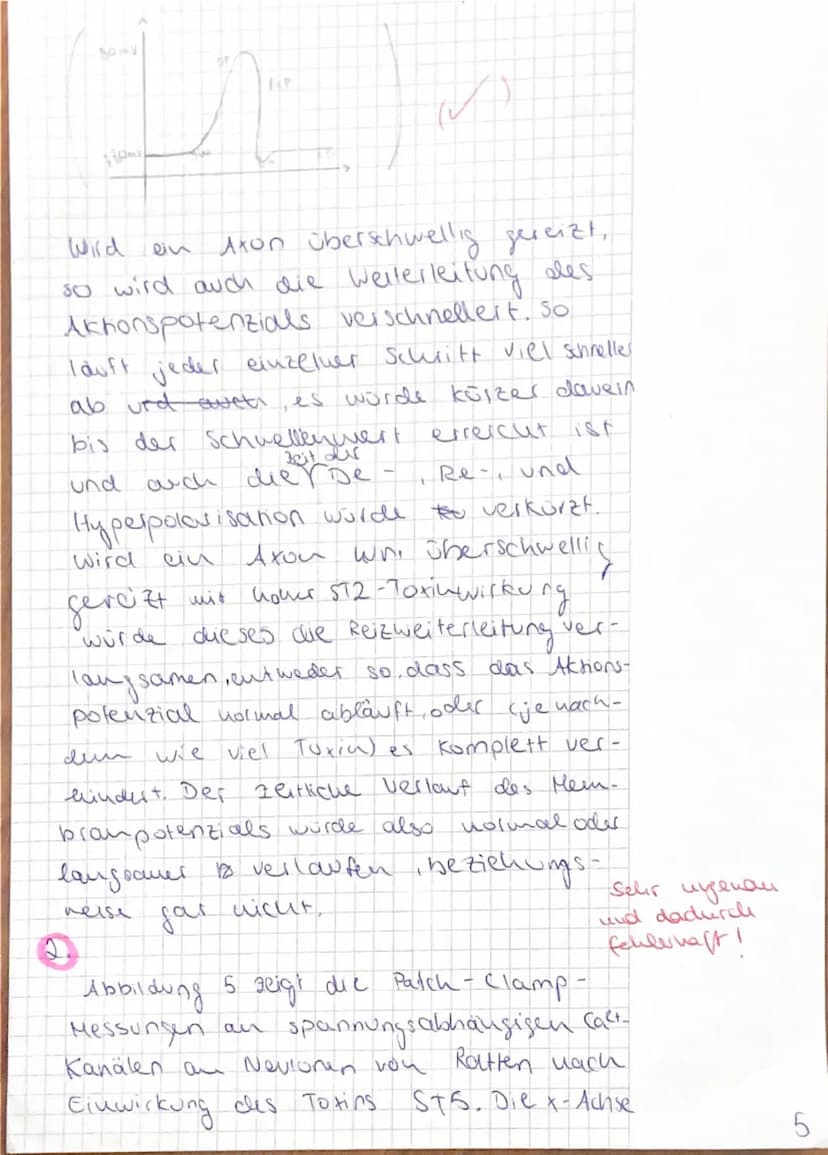 Wird ein Axon überschwellig gereizt,
so wird auch die Weiterleitung des
Aktionspotenzials verschnellert. So
läuft jeder einzelner Schritt viel schneller
ab und auch, es würde kürzer dauern
bis der Schwellenwert erreicht ist
und auch die Zeit der De-, Re-, und
Hyperpolarisation würde verkürzt.
Wird ein Axon wn. überschwellig
gereizt mit hoher ST2-Toxinwirkung
würde dieses die Reizweiterleitung ver-
langsamen, entweder so, dass das Aktions-
potenzial normal abläuft, oder (je nach-
dem wie viel Toxin) es komplett ver-
hindert. Der zeitliche Verlauf des Mem-
branpotenzials würde also normal oder
langsamer verlaufen, beziehungs-
weise gar nicht.
Sehr ungenau
und dadurch
fehlerhaft!
2.
Abbildung 5 zeigt die Patch-Clamp-
Messungen an spannungsabhängigen Ca2+-
Kanälen an Neuronen von Ratten nach
Einwirkung des Toxins ST5. Die x-Achse
5